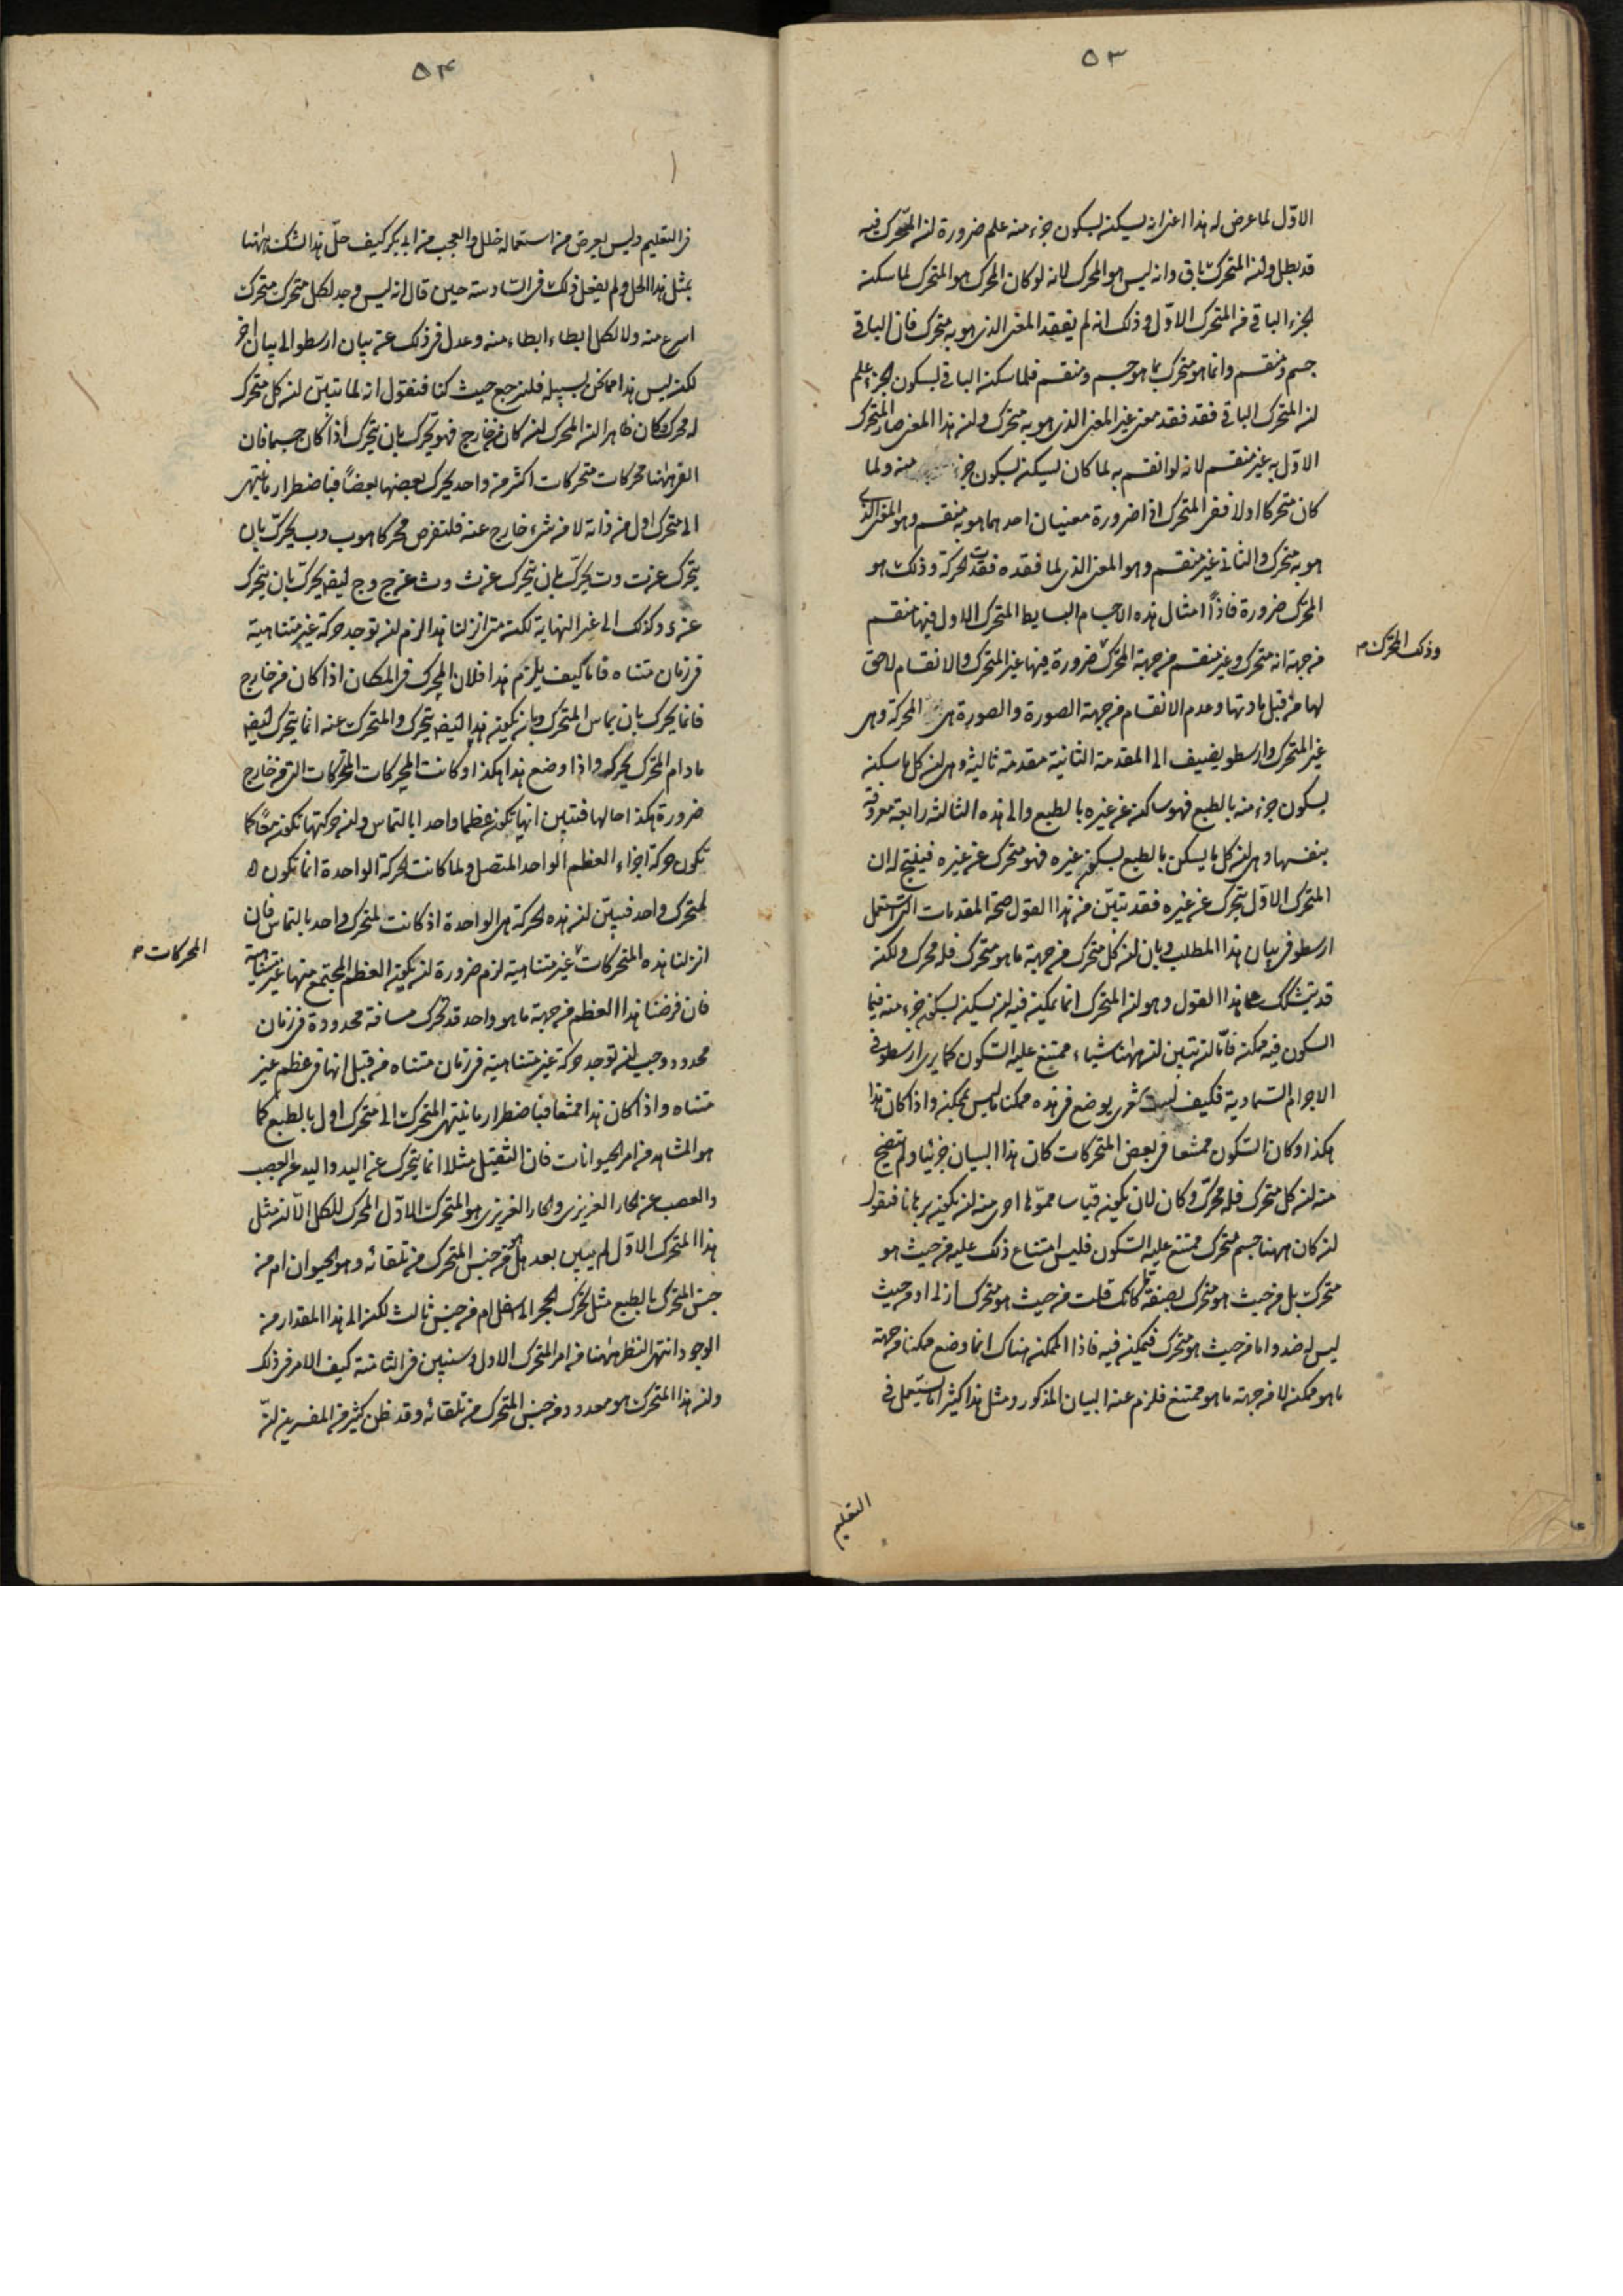 ٥٣
الاوّل لما عرض له هذا اعنى انه يسكن بسكون جزء منه علم ضرورة ان المحرك فيه
قد بطل وان المتحرك باق وانه ليس هو المحرك لانه لو كان المحرك هو المتحرك لما سكن
الجزء الباقى من المتحرك الاوّل وذلك انه لم يفقد المعنى الذى هو به متحرك فان الباقى
جسم ومنقسم وانما هو متحرك بما هو جسم ومنقسم فلما سكن الباقى بسكون الجزء علم
ان المتحرك الباقى فقد فقد معنى غير المعنى الذى هو به متحرك وان هذا المعنى صار المتحرك
الاوّل به غير منقسم لانه لو انقسم به لما كان يسكن بسكون جزء منه ولما
كان متحركا اولا ففى المتحرك اذا ضرورة معنيان احدهما هو به منقسم وهو المعنى الذى
هو به متحرك والثانى غير منقسم وهو المعنى الذى لما فقده فقدت الحركة وذلك هو
المحرك ضرورة فاذاً امثال هذه الاجسام البسايط المتحرك الاول فيها منقسم
من جهة انه متحرك وغير منقسم من جهة المحرك ضرورة فيها غير المتحرك والانقسام لاحق
وذلك المحرك
لها من قبل مادتها وعدم الانقسام من جهة الصورة والصورة هى المحركة وهى
غير المتحرك وارسطو يضيف الى المقدمة الثانية مقدمة ثالثة وهى ان كل ما سكن
بسكون جزء منه بالطبع فهو ساكن عن غيره بالطبع والى هذه الثالثة رابعة معروفة
بنفسها وهى ان كل ما يسكن بالطبع بسكون غيره فهو متحرك عن غيره فينتج له ان
المتحرك الاوّل يتحرك عن غيره فقد تبيّن من هذا القول صحة المقدمات التى استعمل
ارسطو فى بيان هذا المطلب وبان ان كل متحرك من جهة ما هو متحرك فله محرك ولكنه
قد يتشكك على هذا القول وهو ان المتحرك انما يمكن فيه ان يسكن بسكون جزء منه فيما
السكون فيه ممكن فامّا ان تبين ان ههنا شياء ممتنع عليه السكون كما يرى ارسطو فى
الاجرام السماوية فكيف ليت شعرى يوضع فى هذه ممكنا ما ليس بممكن واذا كان هذا
هكذا وكان السكون ممتنعا فى بعض المتحركات كان هذا البيان جزئيا ولم يتضح
منه ان كل متحرك فله محرّك وكان لان يكون قياسا مموّها احرى منه ان يكون برهانا فنقول
ان كان ههنا جسم متحرك ممتنع عليه السكون فليس امتناع ذلك عليه من حيث هو
متحرك بل من حيث هو متحرك بصفة ما كانك قلت من حيث هو متحرك ازلى او من حيث
ليس له ضد واما من حيث هو متحرك فيمكن فيه فاذا الممكن هناك انما وضع ممكنا من جهة
ما هو ممكن لا من جهة ما هو ممتنع فلزم عنه البيان المذكور ومثل هذا كثيرا ما يستعمل فى
التعليم
٥٤
فى التعليم وليس يعرض من استعماله خلل والعجب من ابى بكر كيف حلّ هذا الشك ههنا
بمثل هذا الحل ولم يفعل ذلك فى السادسة حين قال انه ليس وجد لكل متحرك متحرك
اسرع منه ولا لكل ابطاء ابطاء منه وعدل فى ذلك عن بيان ارسطو الى بيان اخر
لكن ليس هذا مما نحن بسبيله فلنرجع حيث كنا فنقول انه لما تبيّن ان كل متحرك
له محرك وكان ظاهرا ان المحرك ان كان من خارج فهو يحرك بان يتحرك اذا كان جسما فان
الفى ههنا محركات متحركات اكثر من واحد يحرك بعضها بعضاً فباضطرار ما ينتهى
الى متحرك اول من ذاته لا من شىء خارج عنه فلنفرض محركا هو ب وب يحرّك بان
يتحرك عن ت وت يحرّك بان يتحرك عن ث وث عن ج وج ايضا يحرّك بان يتحرك
عن ء وكذلك الى غير النهاية لكنه متى انزلنا هذا لزم ان توجد حركة غير متناهية
فى زمان متناه فاما كيف يلزم هذا فلان المحرك فى المكان اذا كان من خارج
فانما يحرك بان يماس المتحرك وبان يكون هذا ايضا يتحرك والمتحرك عنه انما يتحرك ايضا
ما دام المحرك يحركه واذا وضع هذا هكذا وكانت المحركات المتحركات التى من خارج
ضرورة هكذا حالها فتبين انها تكون عظما واحدا بالتماس وان حركتها تكون معًا كما
تكون حركة اجزاء العظم الواحد المتصل ولما كانت الحركة الواحدة انما تكون
لمتحرك واحد فبيّن ان هذه الحركة هى الواحدة اذ كانت لمتحرك واحد بالتماس فان
انزلنا هذه المتحركات غير متناهية لزم ضرورة ان يكون العظم المجتمع منها غير متناهية
المحركات
فان فرضنا هذا العظم من جهة ما هو واحد قد تحرك مسافة محدودة فى زمان
محدود وجب ان توجد حركة غير متناهية فى زمان متناه من قبل انها فى عظم غير
متناه واذا كان هذا ممتنعا فباضطرار ما ينتهى المتحرك الى متحرك اول بالطبع كما
هو المشاهد من امر الحيوانات فان الثقيل مثلا انما يتحرك عن اليد واليد عن العصب
والعصب عن الحار الغريزى والحار الغريزى هو المتحرك الاوّل المحرك للكل الّا انه مثل
هذا المتحرك الاوّل لم يبين بعد هل هو من جنس المتحرك من تلقائه وهو الحيوان ام من
جنس المتحرك بالطبع مثل تحرك الحجر الى اسفل ام من جنس ثالث لكن الى هذا المقدار من
الوجود انتهى النظر ههنا من امر المتحرك الاول وسنبين فى الثامنة كيف الامر فى ذلك
وان هذا المتحرك هو معدود من جنس المتحرك من تلقائه وقد ظن كثير من المفسرين انّ